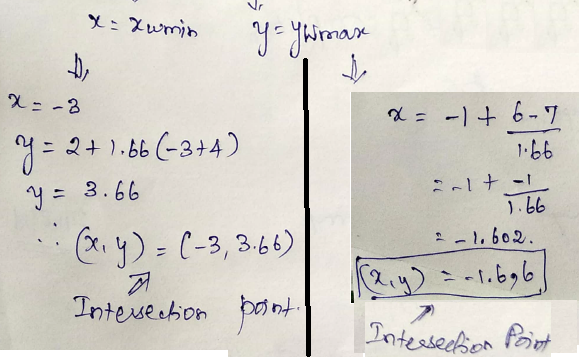 x = xwmin
y = ywmax
x = -3
y = 2 + 1.66 (-3+4)
y = 3.66
∴ (x, y) = (-3, 3.66)
Intersection point.
x = -1 + 6-7
1.66
= -1 + -1
1.66
= -1.602.
(x, y) = -1.6, 6
Intersection Point